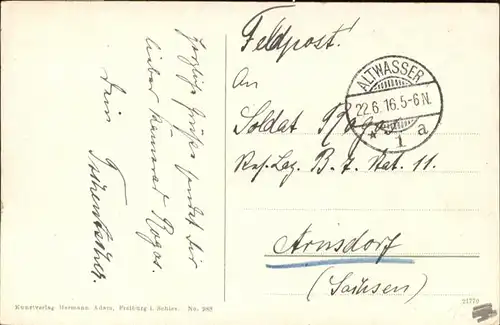 Herzliche Grüße sendet Dir
lieber Kamerad Rogas.
Dein
Feldpost!
An
Soldat Rogas
Res. Laz. B. 7. Stat. 11.
Arnsdorf
(Sachsen)
ALTWASSER
22.6.16.5-6N.
* 1 a
Kunstverlag Hermann Adam, Freiburg i. Schles. No. 985
21770